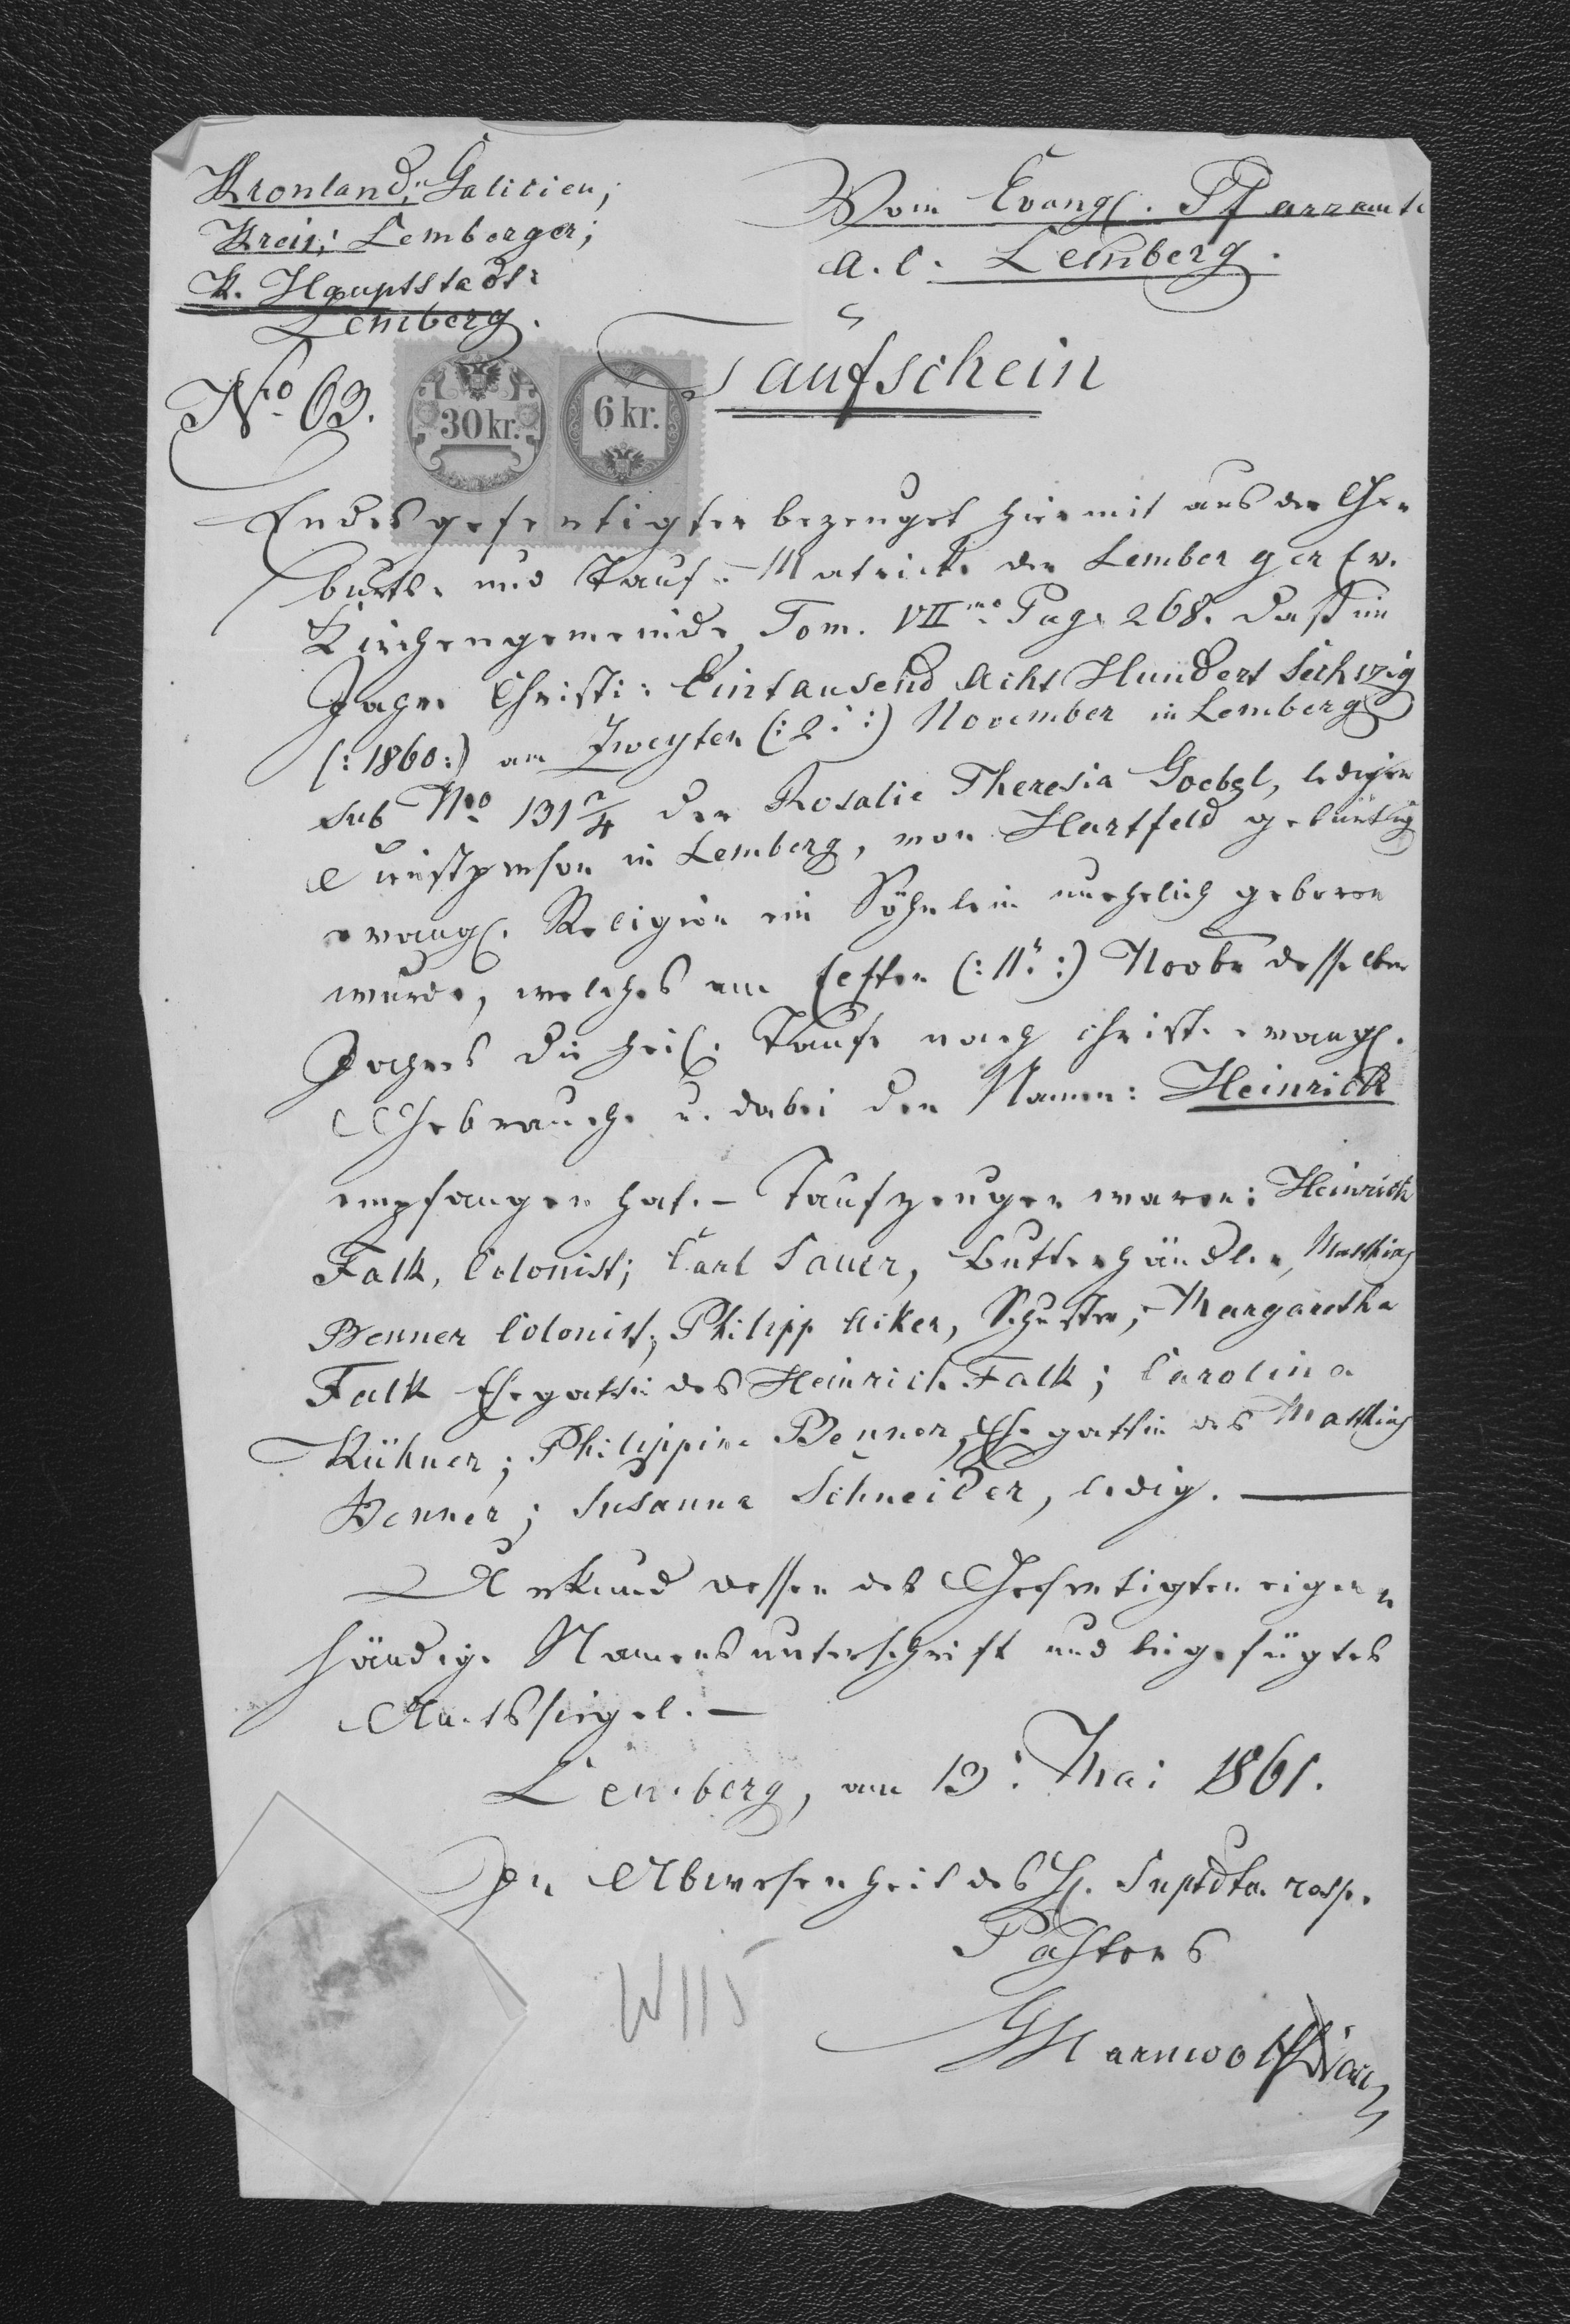 Kronland: Galicien;
Kreis: Lemberger;
K. Hauptstadt:
Lemberg.
Vom Evangl. Pfarramte
A. C. Lemberg.
No 69.
Taufschein
30 kr.
6 kr.
Endesgefertigter bezeuget hiermit aus der Ge-
burts- und Tauf-Matrick der Lemberger Ev.
Kirchengemeinde, Tom. VII Pag. 268. daß im
Jahre Christi: Eintausend Acht Hundert Sechszig
(: 1860 :) am Zweyten (: 2. :) November in Lemberg
sub No 191 2/4 der Rosalie Theresia Goebel, ledigen
Dienstperson in Lemberg, von Hartfeld gebürtig
evangl. Religion ein Söhnlein unehelich geboren
wurde, welches am Eilften (: 11. :) Novbr desselben
Jahres die heil. Taufe nach christ. evangl.
Gebrauche u. dabei den Namen: Heinrich
empfangen hat. – Taufzeugen waren: Heinrich
Falk, Colonist; Carl Sauer, Butterhändler, Matthias
Benner Colonist; Philipp Acker, Schuster; Margaretha
Falk Ehegattin des Heinrich Falk; Carolina
Kühner; Philippine Benner, Ehegattin des Matthias
Benner; Susanna Schneider, ledig. —
Urkund dessen des Gefertigten eigen-
händige Namensunterschrift und beigefügtes
Amtssiegel. —
Lemberg, am 19. Mai 1861.
In Abwesenheit des H. Suptdtn. resp.
Pastors
W 115